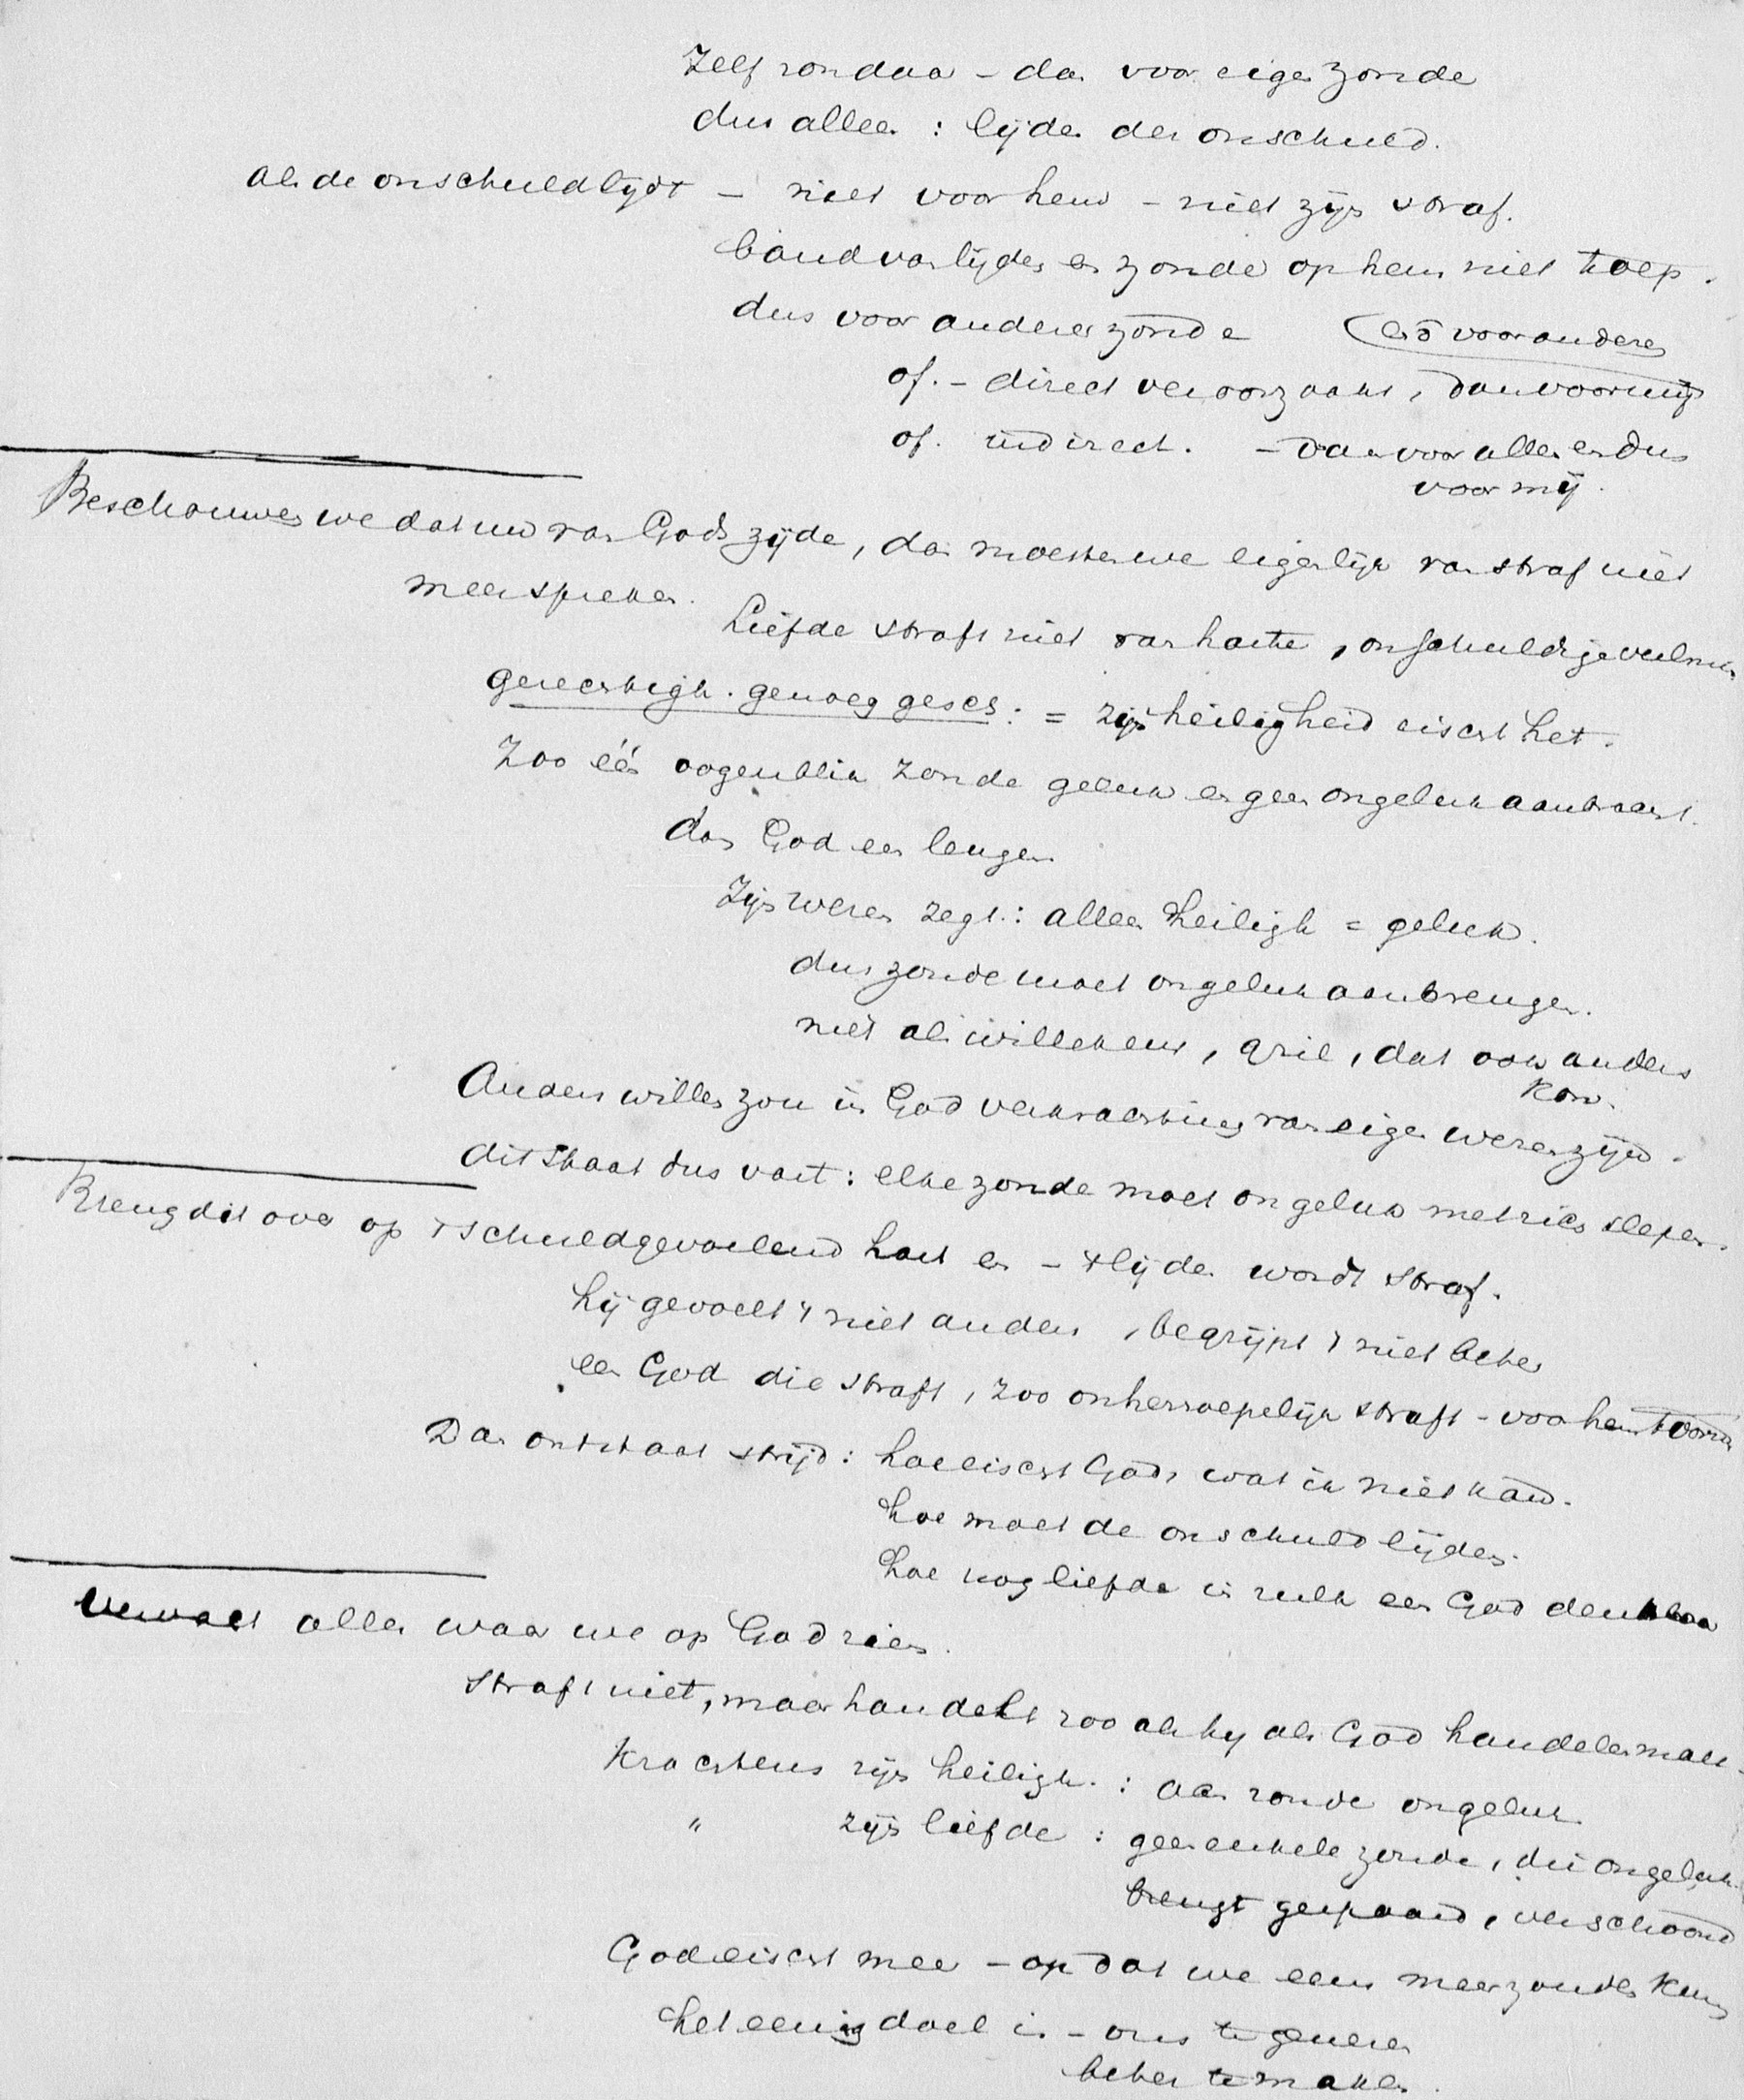 Zelf zondaar – dan voor eigen zonde
dus alleen : lijden der onschuld.
als de onschuld lijdt – niet voor hem – niet zijn straf.
band van lijden en zonde op hem niet toep.
dus voor anderer zonde en voor anderen
of. – direct veroorzaakt, dan voor mij
of. indirect. – dan voor allen en dus
voor mij.
Beschouwen we dat nu van Gods zijde, dan moesten we eigenlijk van straf niet
meer spreken.
Liefde straft niet van harte, onschuldige
gerechtigh. genoeg gesch : = zijn heiligheid eischt het.
Zoo één oogenblik zonde geluk en geen ongeluk aanbracht.
dan God een leugen
Zijn wezen zegt : alleen heiligh = geluk.
dus zonde moet ongeluk aanbrengen.
niet als willekeur, gril, dat ook anders
kon.
Anders willen zou in God verkrachting van eigen wezen zijn.
dit staat dus vast : elke zonde moet ongeluk met zich slepen.
Breng dit over op 't schuldgevoelend hart en – 't lijden wordt straf.
hij gevoelt 't niet anders, begrijpt 't niet beter
een God die straft, zoo onherroepelijk straft – voor hem toorn
Dan ontstaat strijd : hoe eischt God, wat ik niet kan.
hoe moet de onschuld lijden.
hoe nog liefde in zulk een God denkbaar
alles waar we op God zien.
Straft niet, maar handelt zoo als hij als God handelen moet.
Krachtens zijn heiligh. : aan zonde ongeluk
" zijn liefde : geen enkele zonde, die ongeluk
brengt gespaard, verschoond
God eischt meer – opdat we eens meer zouden kunn
het eenig doel is – ons te genezen
beter te maken.